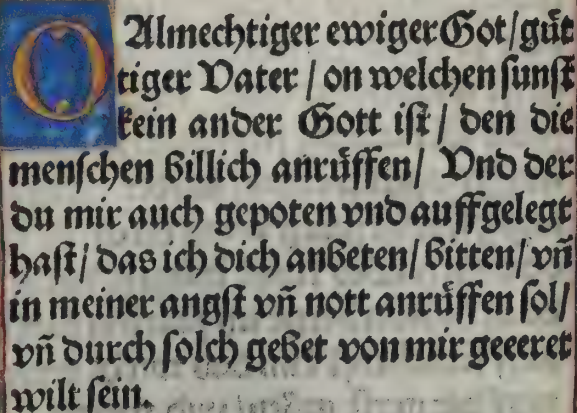 O Almechtiger ewiger Got/gůt
tiger Vater / on welchen sunst
kein ander Gott ist / den die
menschen billich anrůffen/ Vnd der
du mir auch gepoten vnd auffgelegt
hast/ das ich dich anbeten/ bitten/ vñ
in meiner angst vñ nott anrůffen sol/
vñ durch solch gebet von mir geeeret
wilt sein.